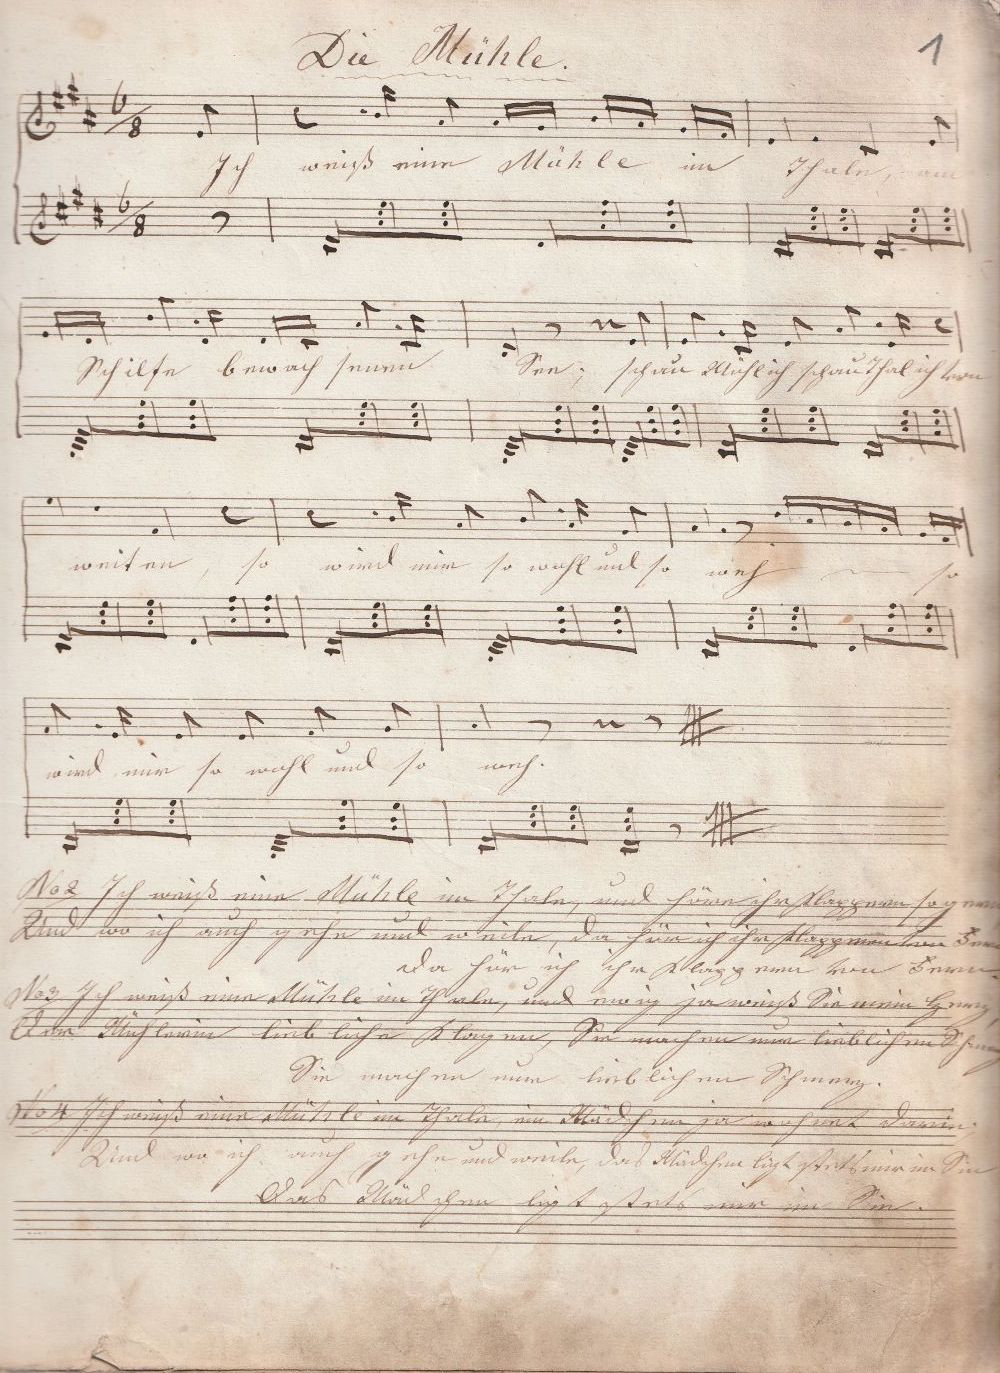 Die Mühle.
1
6/8
Ich weiß eine Mühle im Thale, am
6/8
Schilfe bewachsenen See; schau Mühlich schau Thalich von
weiten, so wird mir so wohl und so weh so
wird mir so wohl und so weh.
No 2 Ich weiß eine Mühle im Thale, und höre ihr Klappern so gern
Und wo ich auch gehe und weile, da hör ich ihr Klappern von Fern
da hör ich ihr Klappern von Fern.
No 3 Ich weiß eine Mühle im Thale, und ewig ja weiß Sie mein Herz,
Der Mühlerin liebliche Klagen, Sie machen nur lieblichen Schmerz
Sie machen nur lieblichen Schmerz.
No 4 Ich weiß eine Mühle im Thale, ein Mädchen ja wohnet darin,
Und wo ich auch gehe und weile, das Mädchen ligt stets mir im Sin
Das Mädchen ligt stets mir im Sin.